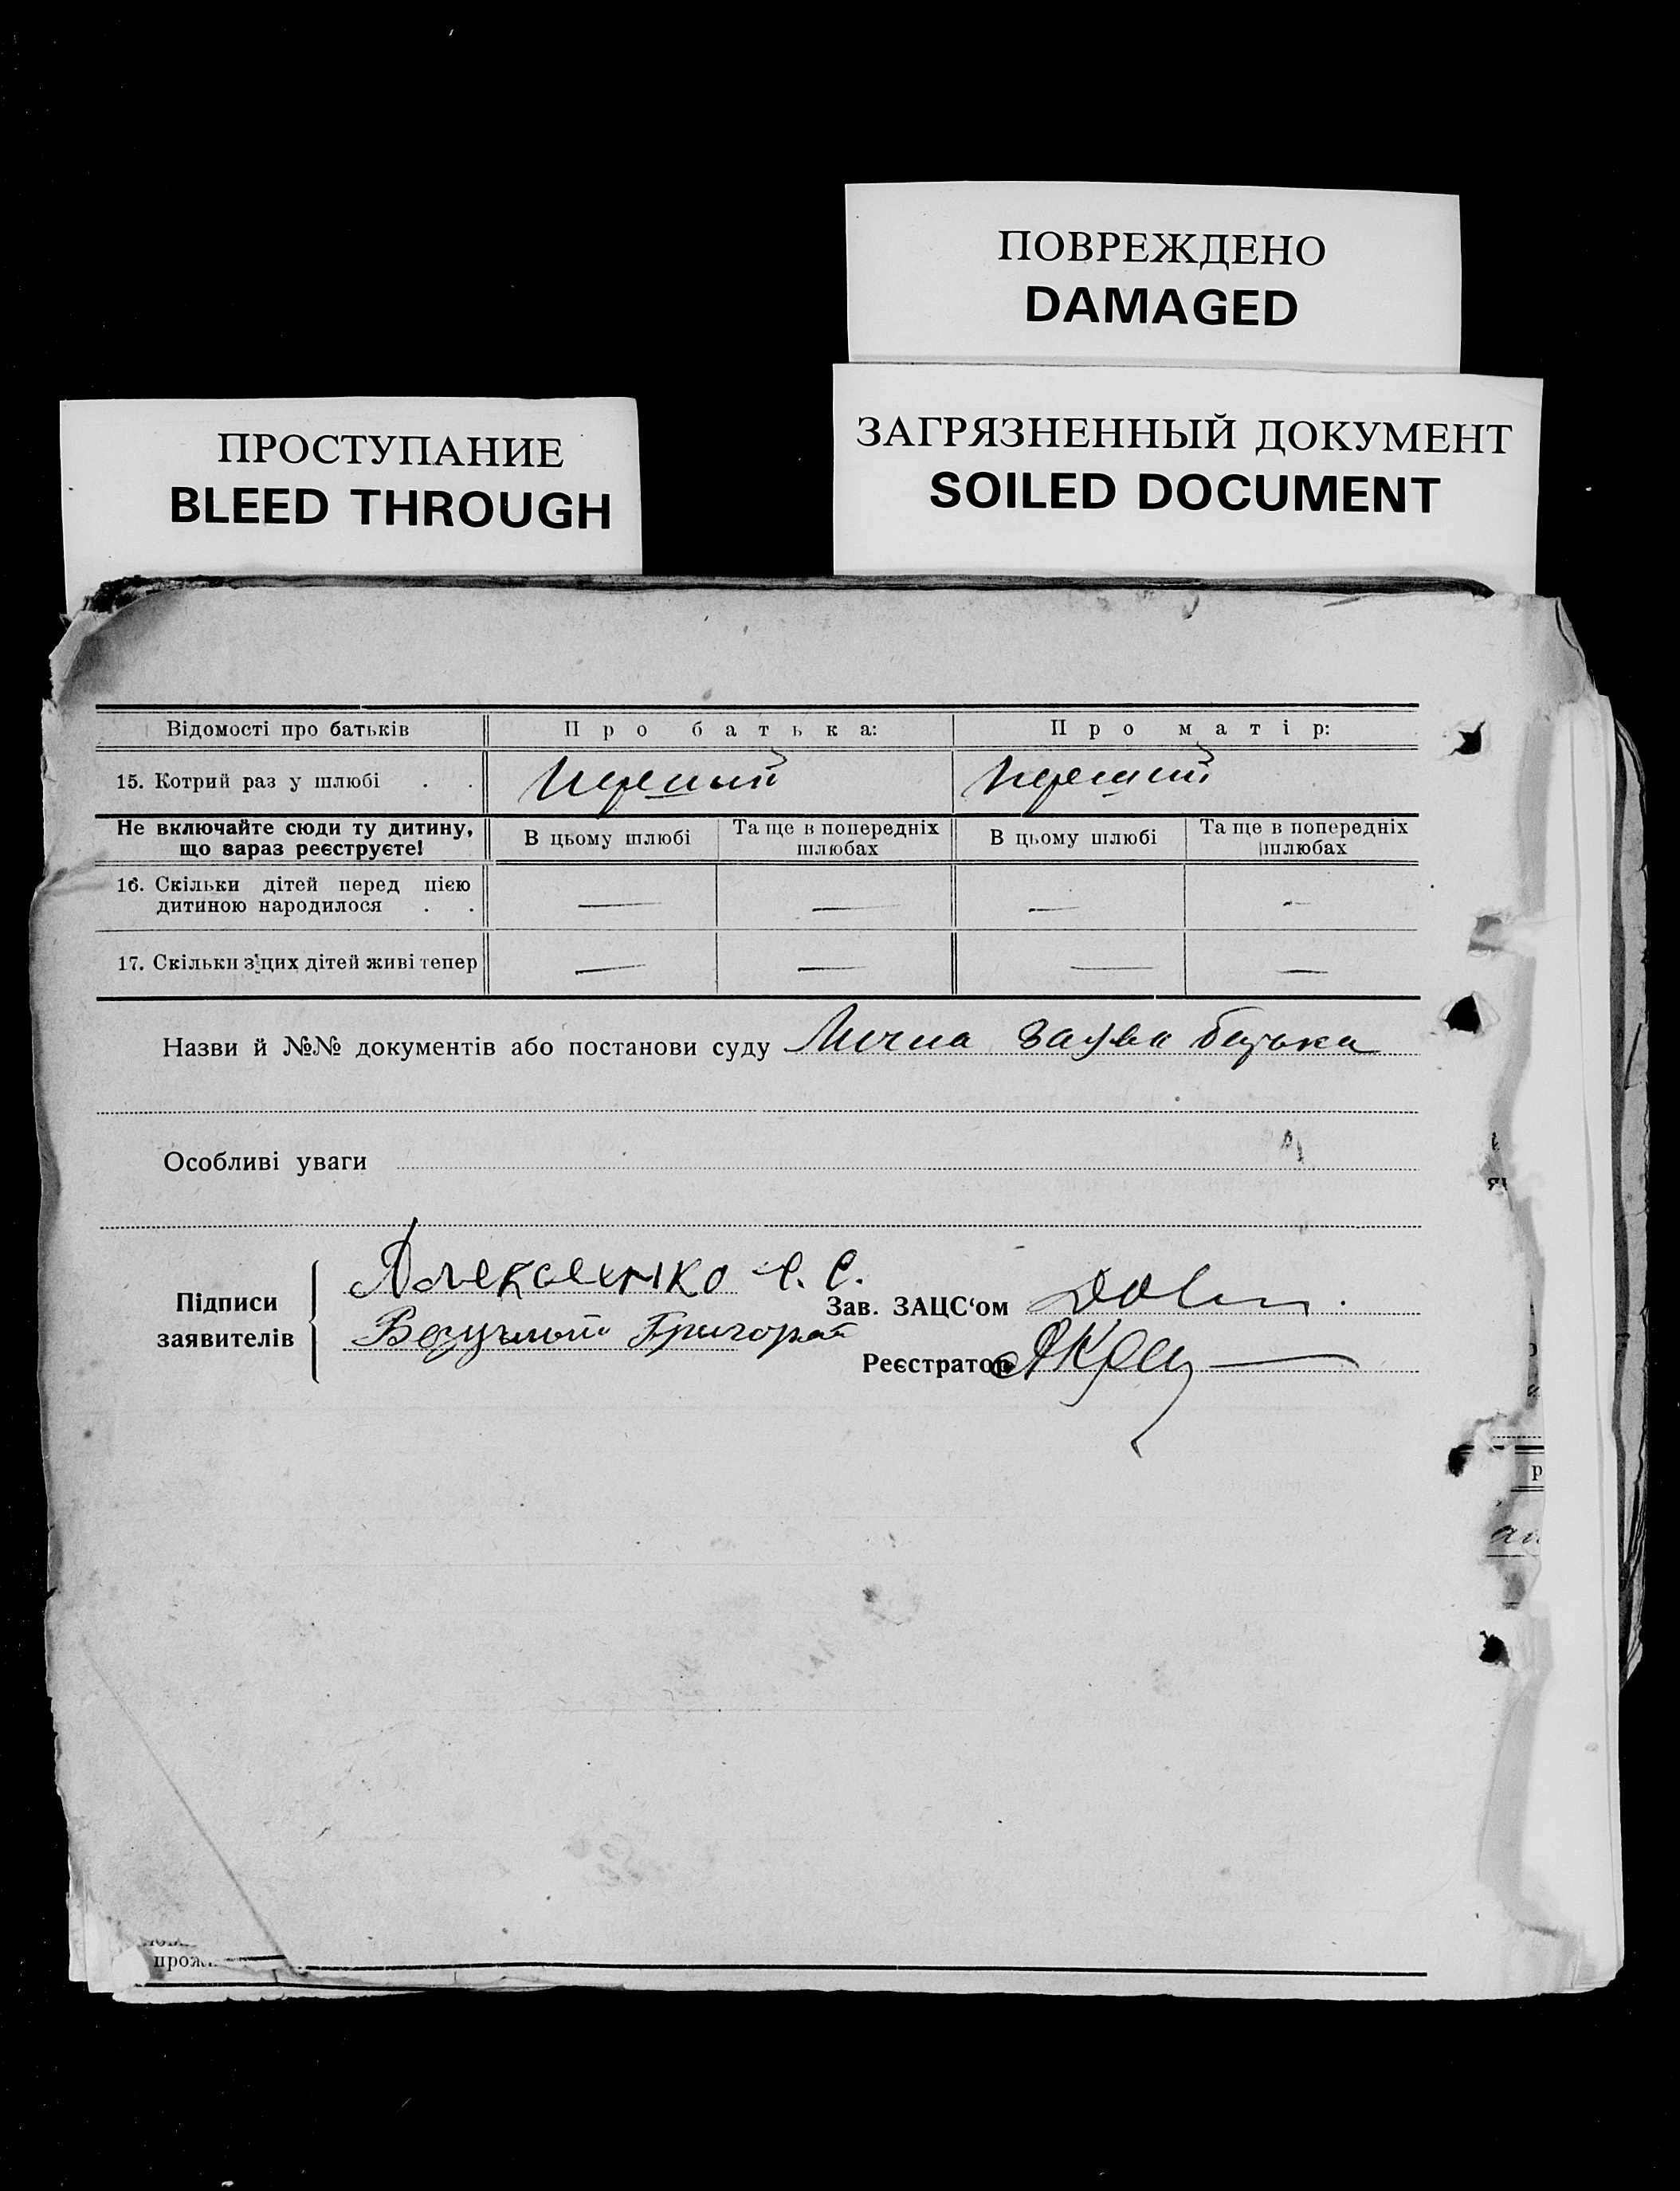 ПОВРЕЖДЕНО
DAMAGED
ЗАГРЯЗНЕННЫЙ ДОКУМЕНТ
SOILED DOCUMENT
ПРОСТУПАНИЕ
BLEED THROUGH
Відомості про батьків Про батька: Про матір:
15. Котрий раз у шлюбі . . первый перший
Не включайте сюди ту дитину, що зараз реєструєте! В цьому шлюбі Та ще в попередніх шлюбах В цьому шлюбі Та ще в попередніх шлюбах
16. Скільки дітей перед цією дитиною народилося . . — — — —
17. Скільки з цих дітей живі тепер — — — —
Назви й №№ документів або постанови суду Лична заява батька
Особливі уваги
Підписи заявителів
Алексеенко
Григорий
Зав. ЗАЦС‘ом
Реєстратор
прож